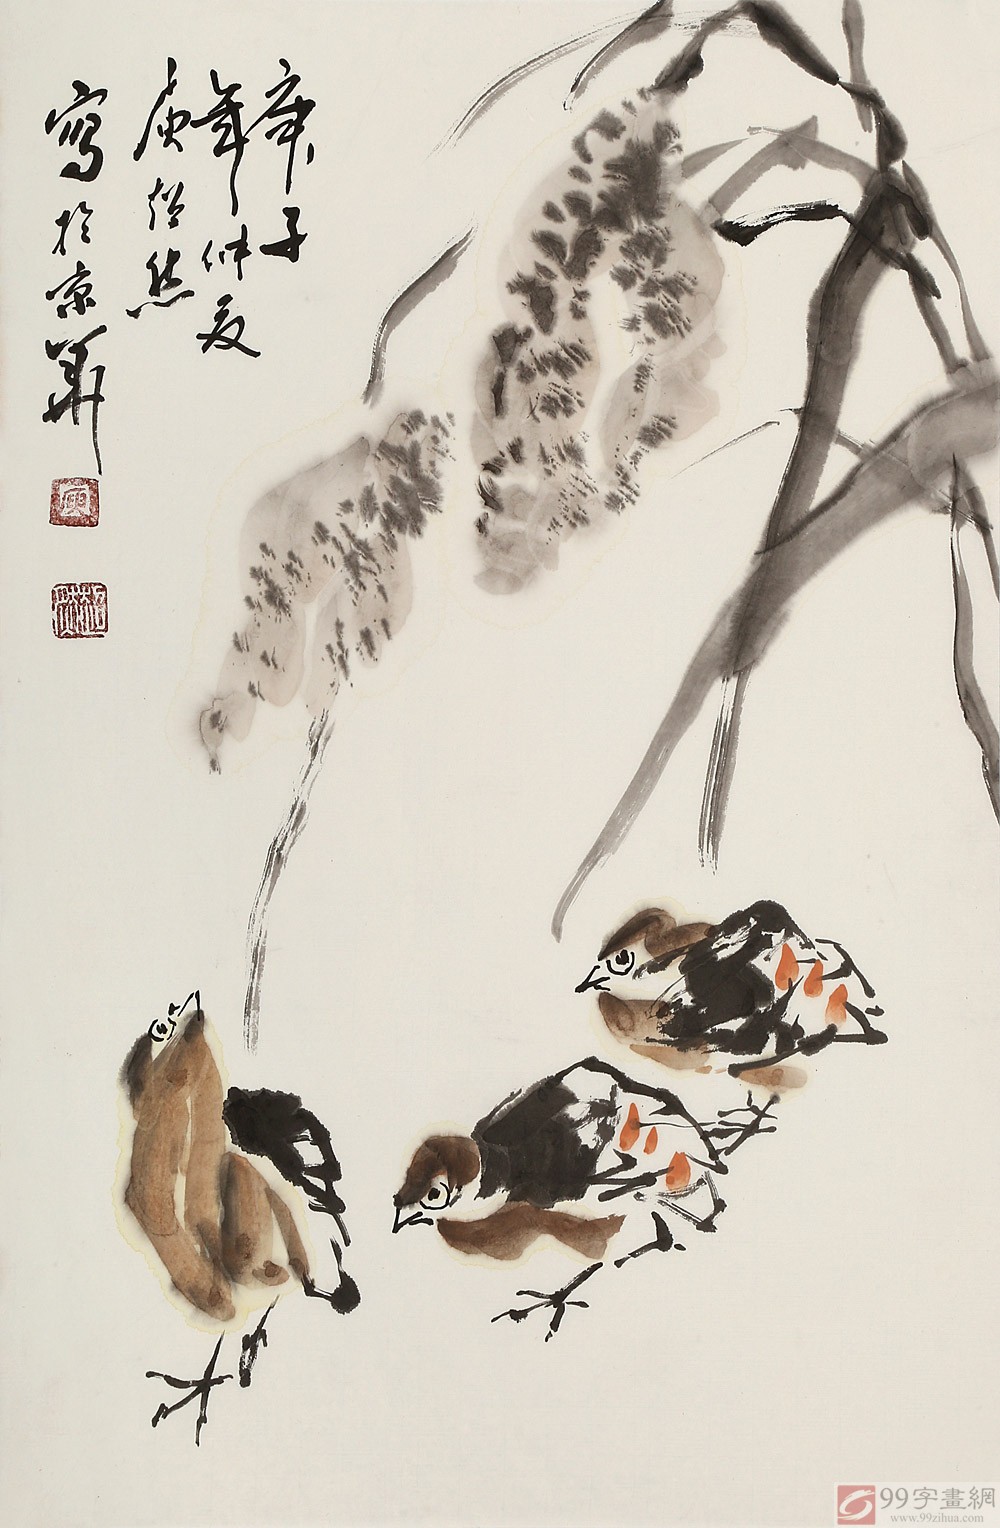 庚子
年仲夏
超然
寫於京華
99字畫網
www.99zihua.com